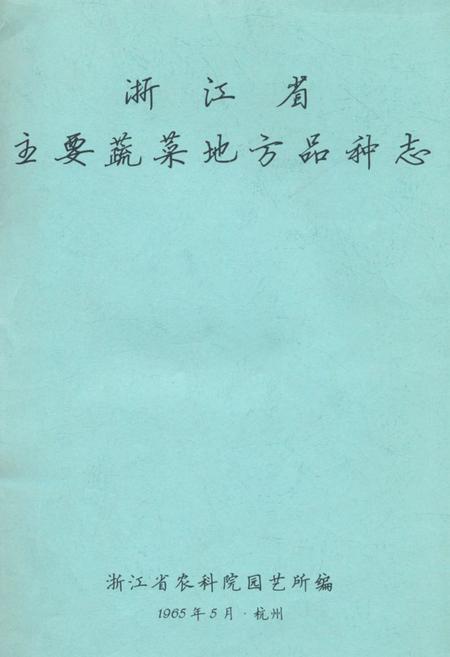 浙江省
主要蔬菜地方品种志
浙江省农科院园艺所编
1965年5月·杭州